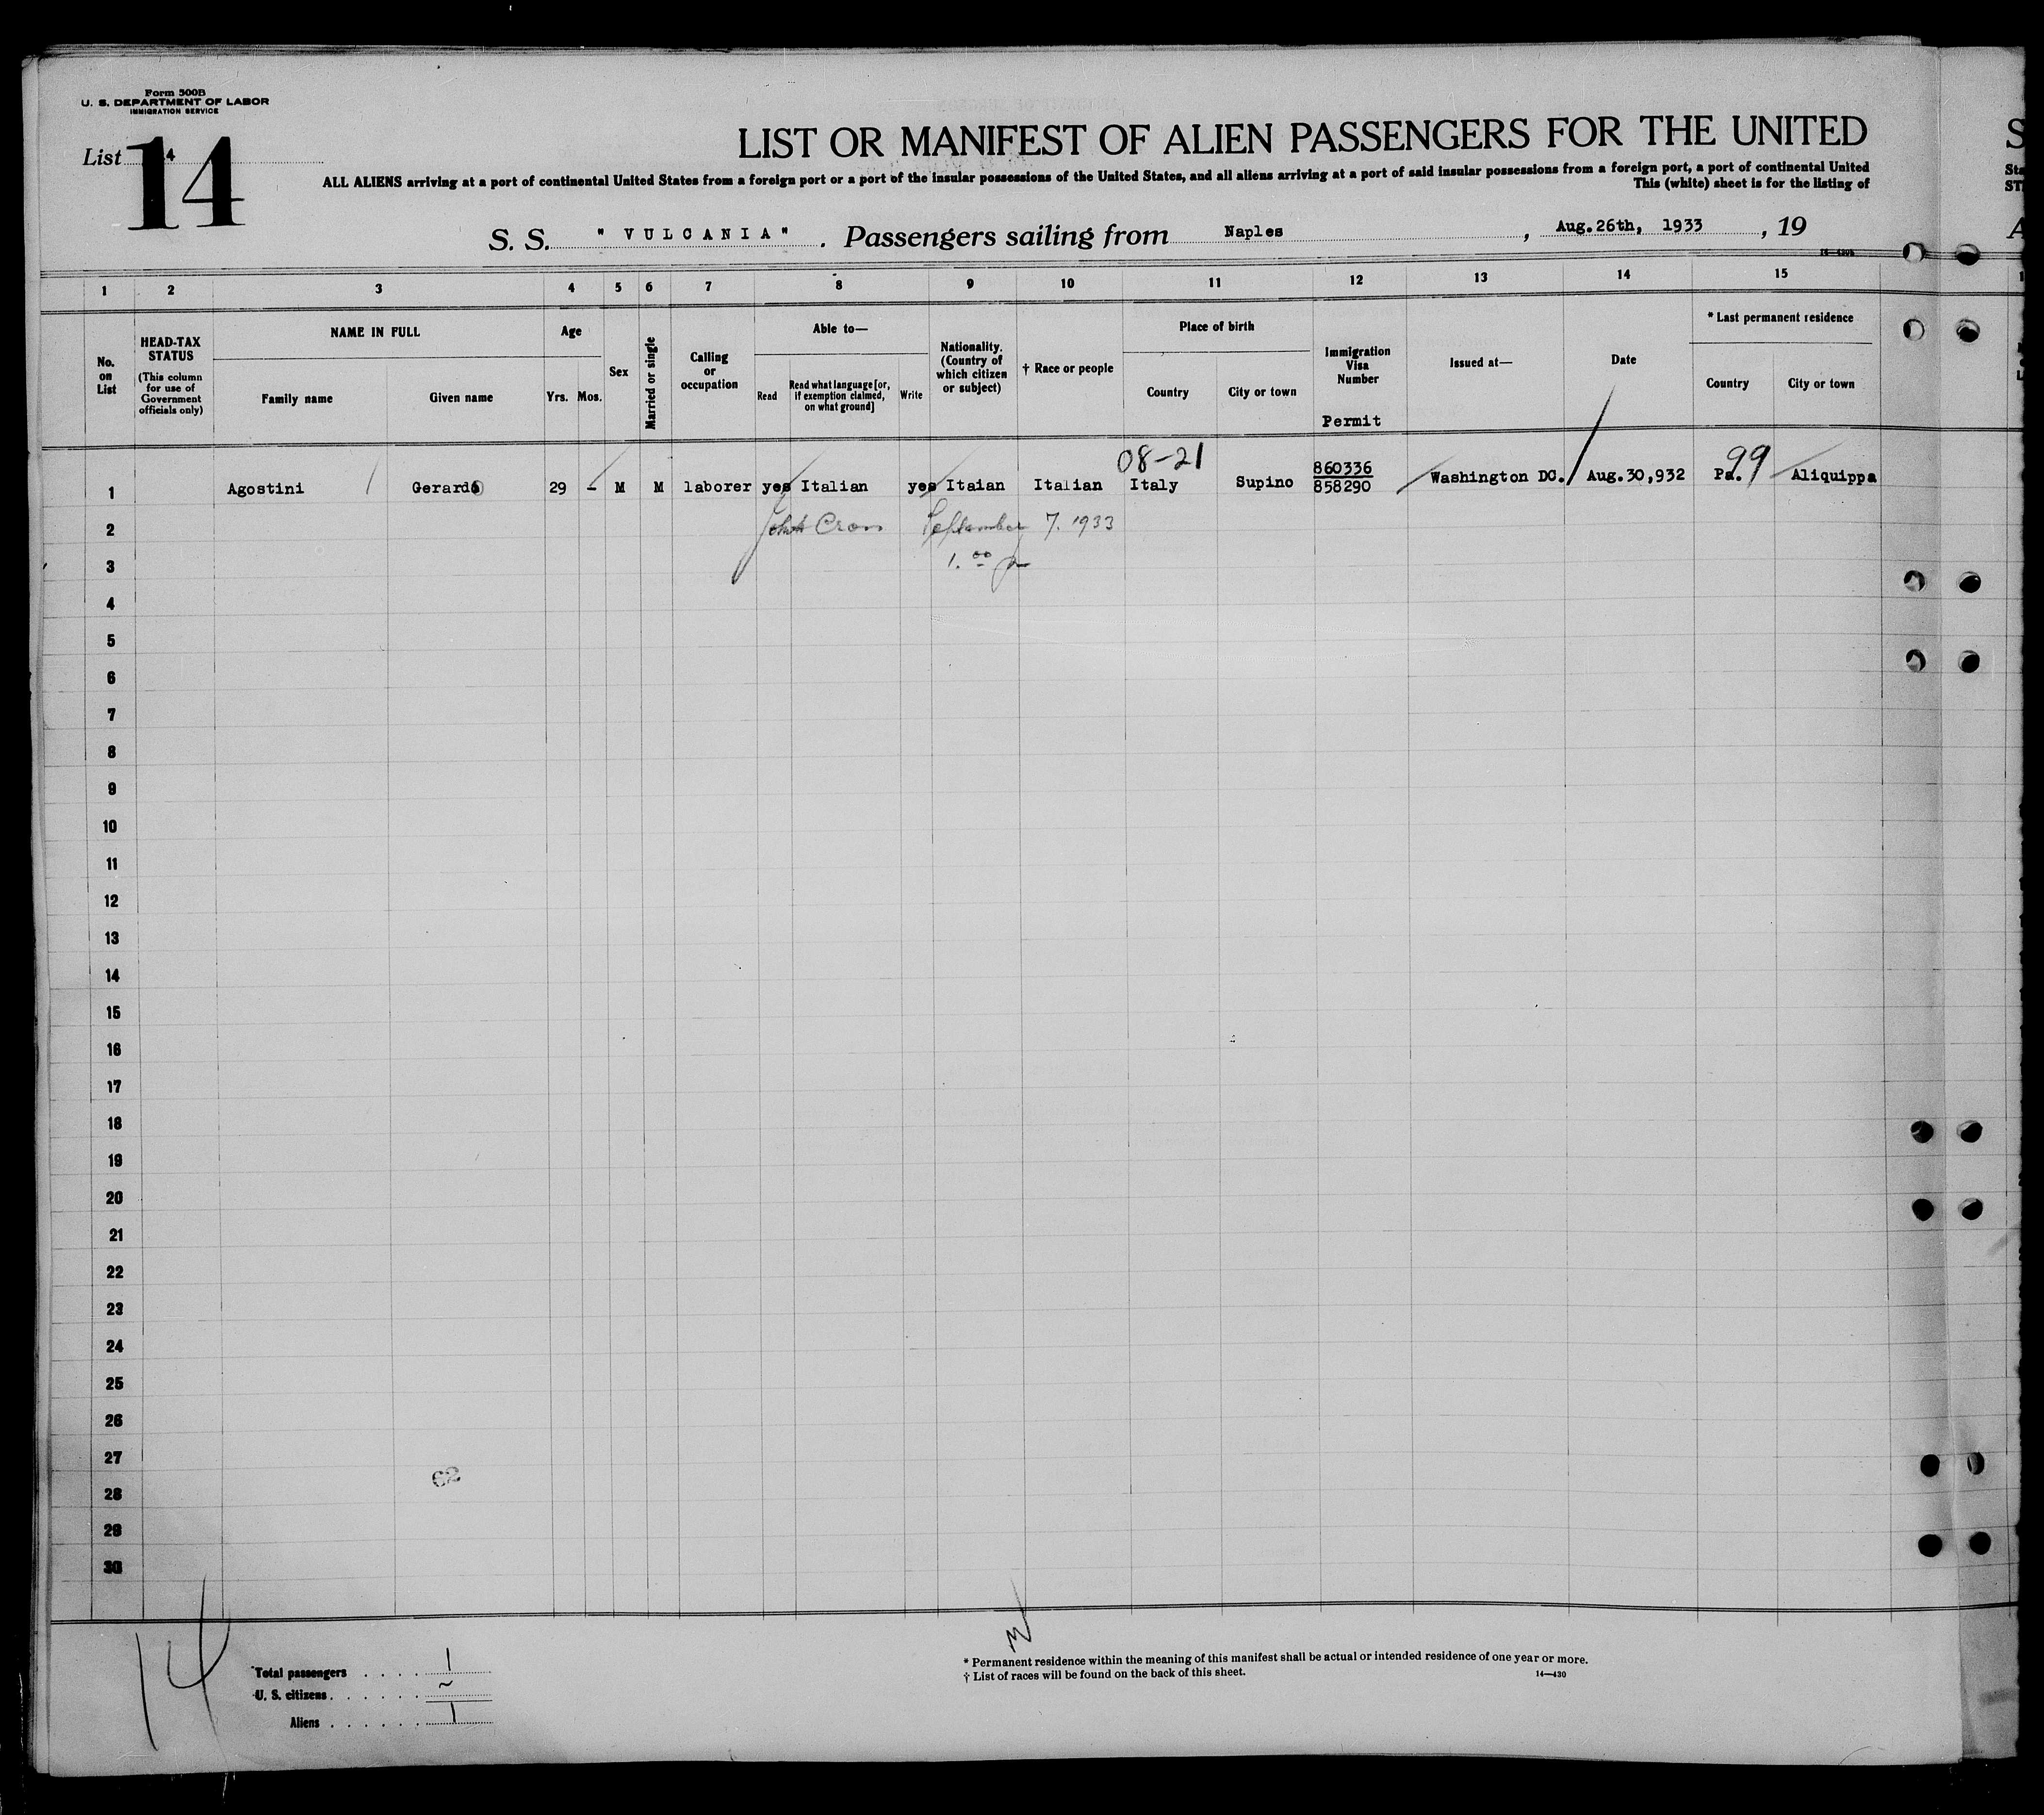 Form 500B
U. S. DEPARTMENT OF LABOR
IMMIGRATION SERVICE
List 14
LIST OR MANIFEST OF ALIEN PASSENGERS FOR THE UNITED
ALL ALIENS arriving at a port of continental United States from a foreign port or a port of the insular possessions of the United States, and all aliens arriving at a port of said insular possessions from a foreign port, a port of continental United
This (white) sheet is for the listing of
S. S. " VULCANIA " . Passengers sailing from Naples , Aug.26th, 1933 , 19
1 2 3 4 5 6 7 8 9 10 11 12 13 14 15
No. on List
HEAD-TAX STATUS
(This column for use of Government officials only)
NAME IN FULL
Family name
Given name
Age
Yrs. Mos.
Sex
Married or single
Calling or occupation
Able to—
Read
Read what language [or, if exemption claimed, on what ground]
Write
Nationality. (Country of which citizen or subject)
† Race or people
Place of birth
Country
City or town
Immigration Visa Number
Permit
Issued at—
Date
* Last permanent residence
Country
City or town
08-21
99
1 Agostini Gerardo 29 - M M laborer yes Italian yes Itaian Italian Italy Supino 860336 858290 Washington DC. Aug.30,932 Pa. Aliquippa
2 September 7. 1933
3 1.00
4
5
6
7
8
9
10
11
12
13
14
15
16
17
18
19
20
21
22
23
24
25
26
27
62
28
29
30
14
Total passengers . . . . 1
U. S. citizens . . . . . . ~
Aliens . . . . . . 1
* Permanent residence within the meaning of this manifest shall be actual or intended residence of one year or more.
† List of races will be found on the back of this sheet.
14—430